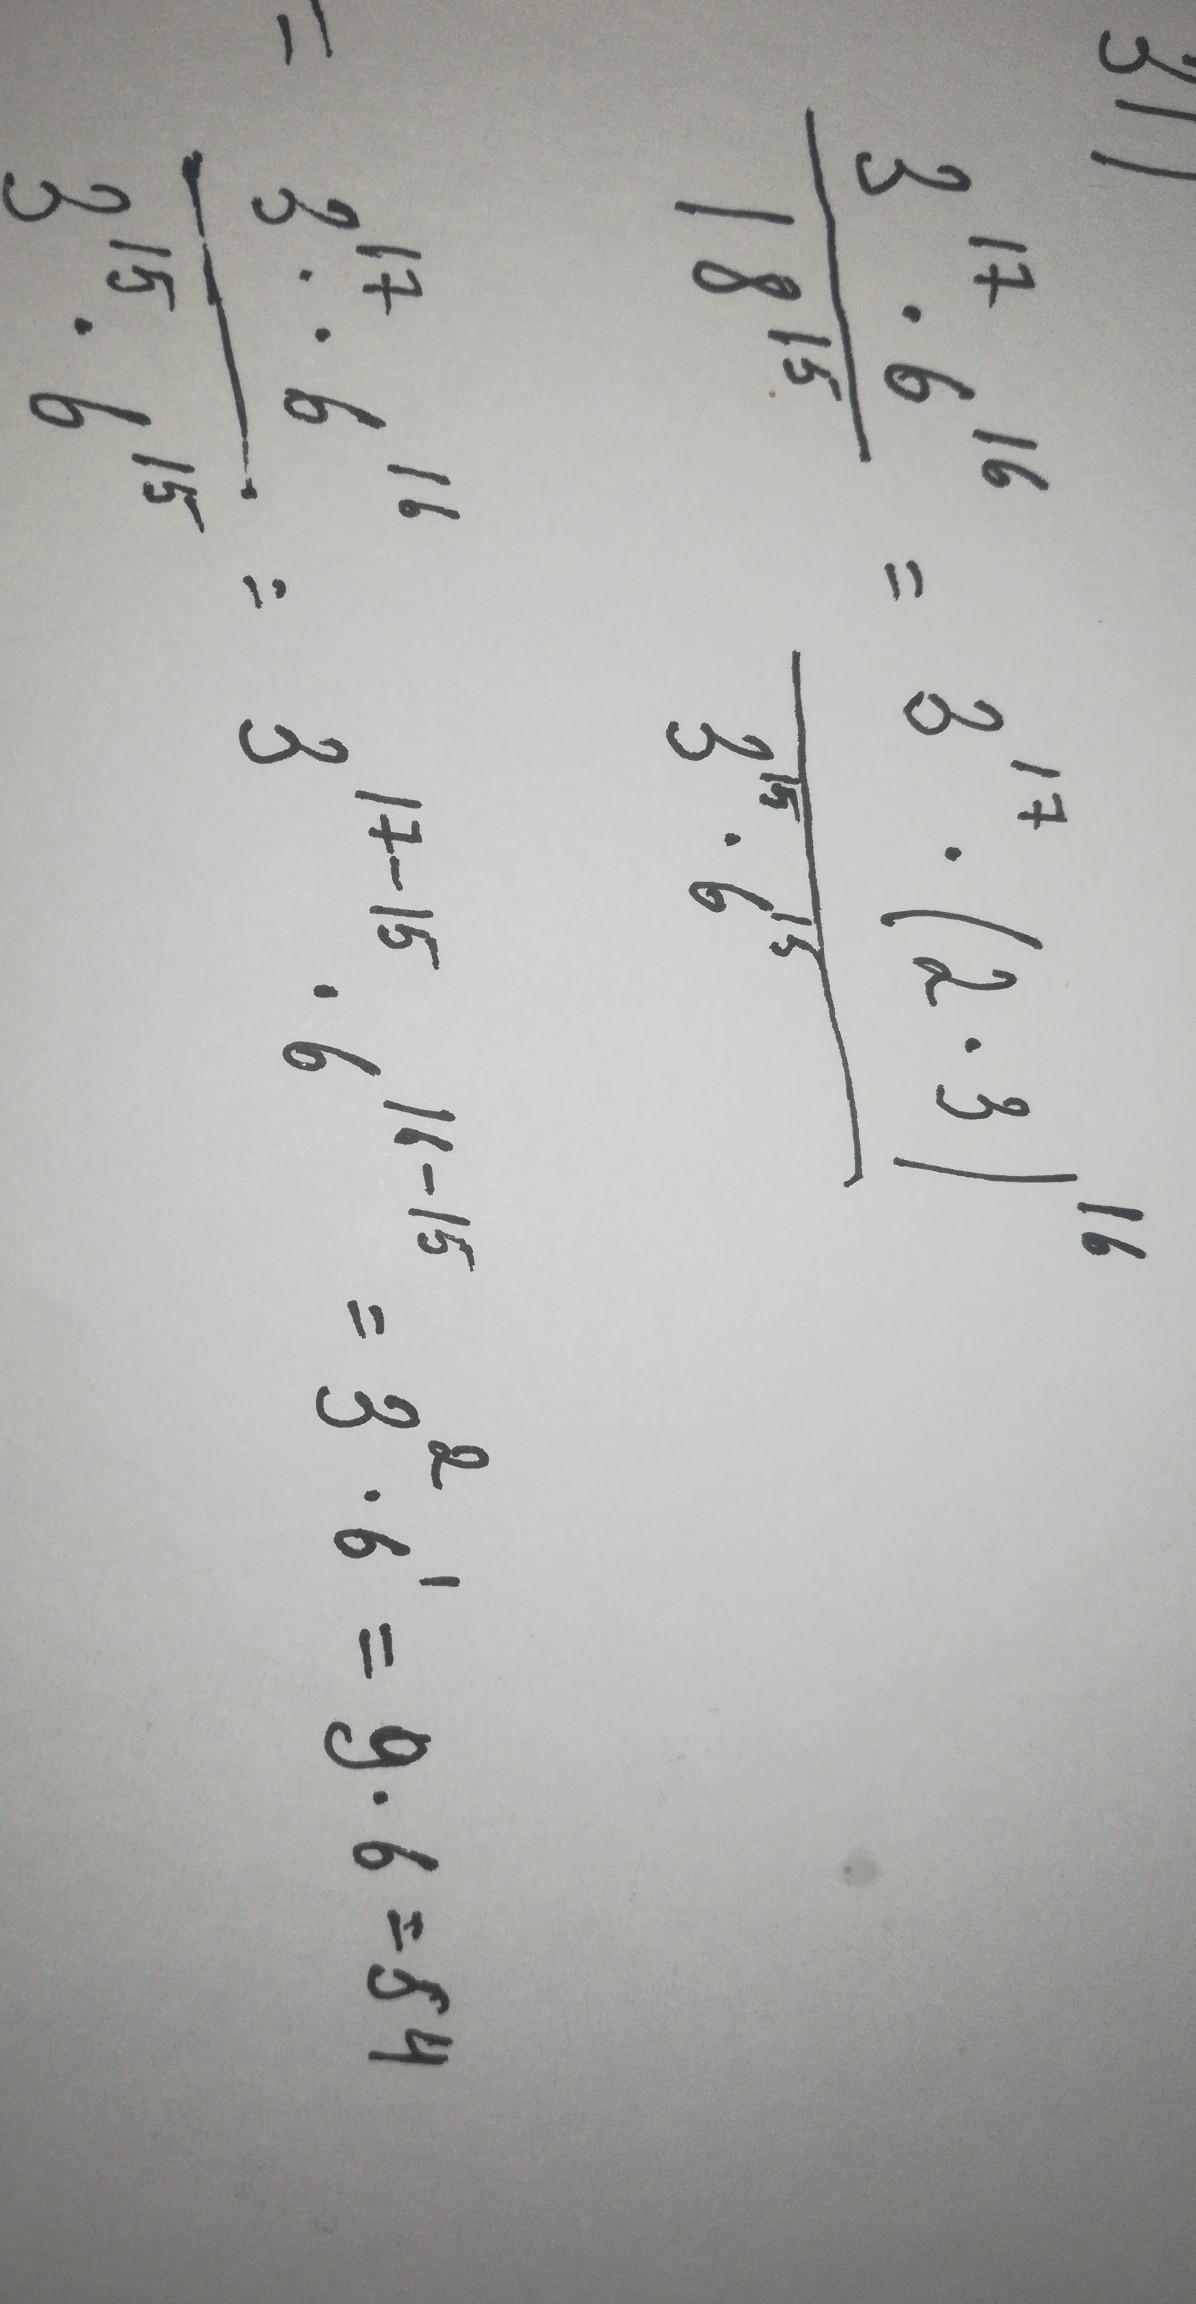 3))
3^17 · 6^16 / 18^15 = 3^17 · (2 · 3)^16 / 3^15 · 6^15
= 3^17 · · 6^16 / 3^15 · 6^15 = 3^17-15 · 6^16-15 = 3^2 · 6^1 = 9 · 6 = 54